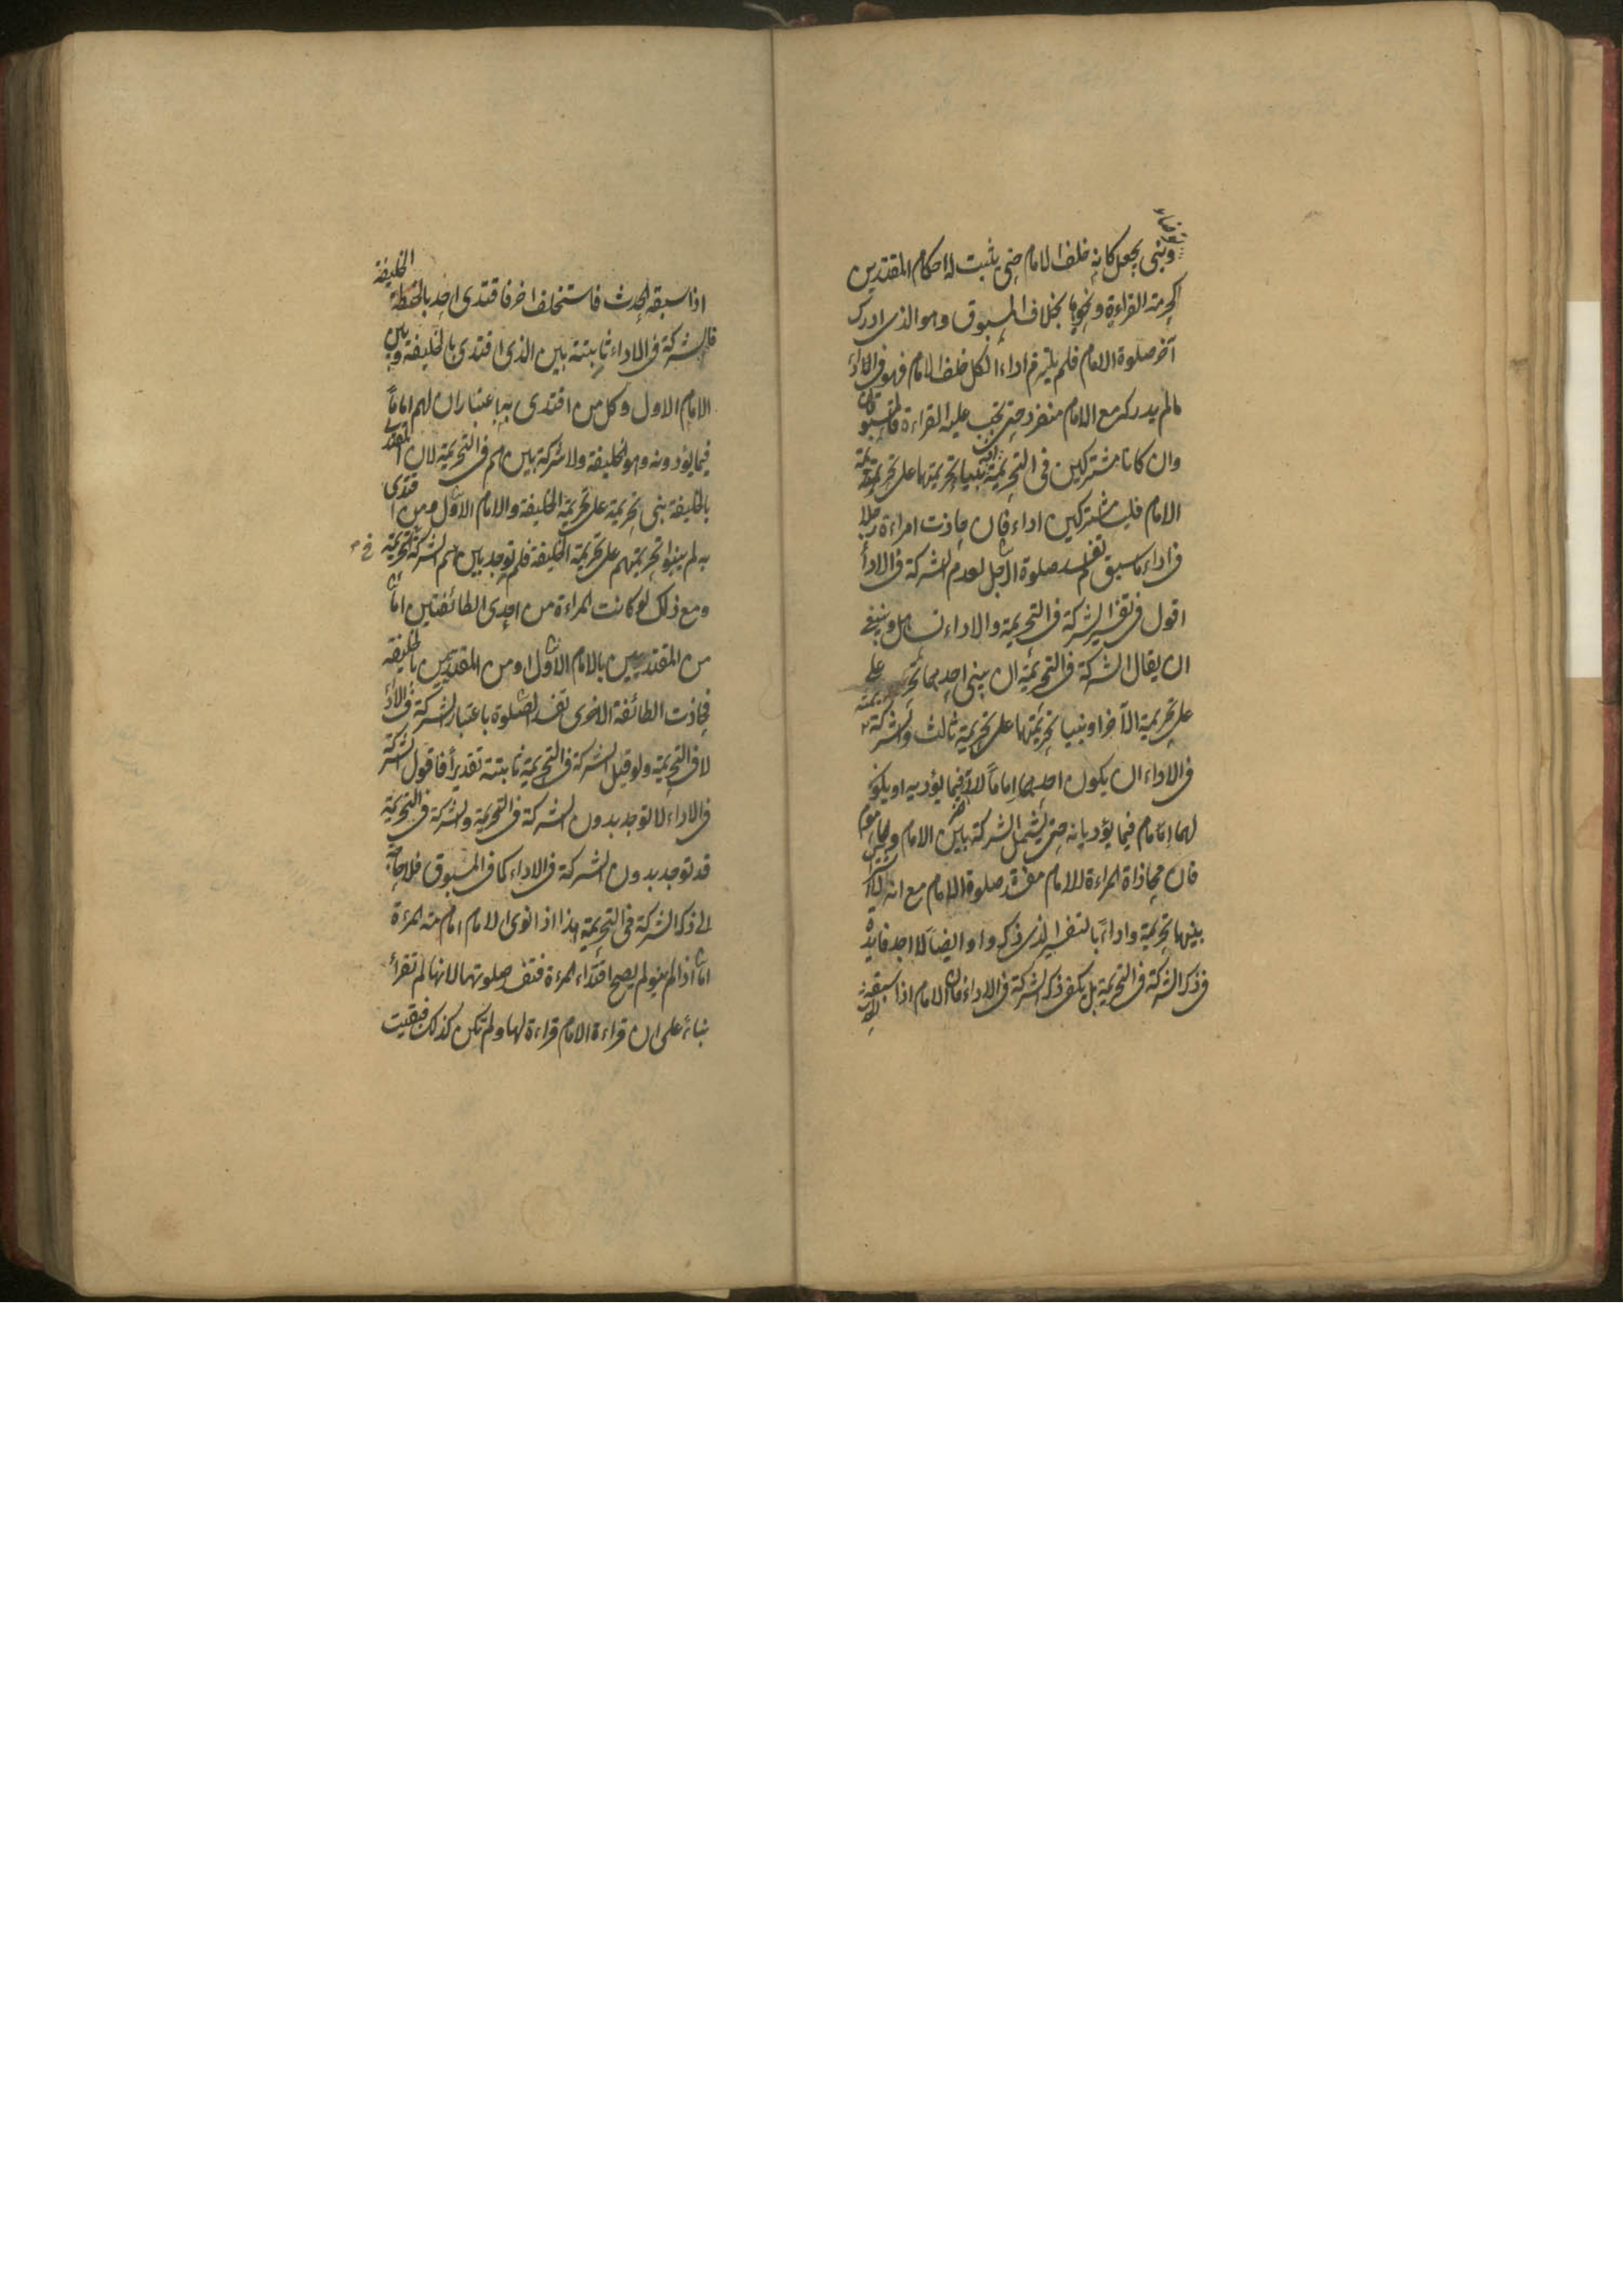 وبنى يجعل كانه خلف الامام حتى يثبت له احكام المقتدين
كحرمة القراءة ونحوها بخلاف المسبوق وهو الذى ادرك
آخر صلوة الامام فلم يلتزم اداء الكل خلف الامام فهو فى اداء
مالم يدركه مع الامام منفرد حتى تجب عليه القراءة فالمسبوقان
وان كانا مشتركين فى التحريمة بنيا تحريمتهما على تحريمة
الامام فليسا مشتركين اداء فان حاذت امراءة رجلا
فى اداء ما سبق لم تفسد صلوة الرجل لعدم الشركة فى الاداء
اقول فى تفسير الشركة فى التحريمة والاداء تساهل وينبغى
ان يقال الشركة فى التحريمة ان يبنى احدهما تحريمته على
على تحريمة الآخر او بنيا تحريمتهما على تحريمة ثالث والشركة
فى الاداء ان يكون احدهما اماماً للآخر فيما يؤديه او يكون
لهما امام فيما يؤديانه حتى يشمل الشركة بين الامام والماموم
فان محاذاة المراءة للامام مفسدة صلوة الامام مع انه لا اشتراك
بينهما تحريمة واداءً بالتفسير الذى ذكروا وايضاً لا اجد فايدة
فى ذكر الشركة فى التحريمة بل يكفى ذكر الشركة فى الاداء فان الامام اذا سبقه الحدث
اذا سبقه الحدث فاستخلف اخر فاقتدى احد بالخليفة
فالشركة فى الاداء ثابتة بين الذى اقتدى بالخليفة وبين
الامام الاول وكل من اقتدى به باعتبار ان لهم اماماً
فيما يؤدونه وهو الخليفة ولا شركة بينهم فى التحريمة لان المقتدى
بالخليفة بنى تحريمة على تحريمة الخليفة والامام الاول ومن اقتدى
به لم يبنوا تحريمتهم على تحريمة الخليفة فلم توجد بينهم الشركة فى التحريمة
ومع ذلك لو كانت المراءة من احدى الطائفتين اما
من المقتديين بالامام الاول او من المقتديين بالخليفة
فحاذت الطائفة الاخرى تفسد الصلوة باعتبار الشركة فى الاداء
لا فى التحريمة ولو قيل الشركة فى التحريمة ثابتة تقديراً فاقول الشركة
فى الاداء لا توجد بدون الشركة فى التحريمة والشركة فى التحريمة
قد توجد بدون الشركة فى الاداء كما فى المسبوق فلا حاجة
الى ذكر الشركة فى التحريمة هذا اذا نوى الامام امامته المرءة
اما اذا لم ينو لم يصح اقتداء المرءة فتفسد صلوتها لانها لم تقراء
بناءً على ان قراءة الامام قراءة لها ولم تكن كذلك فبقيت